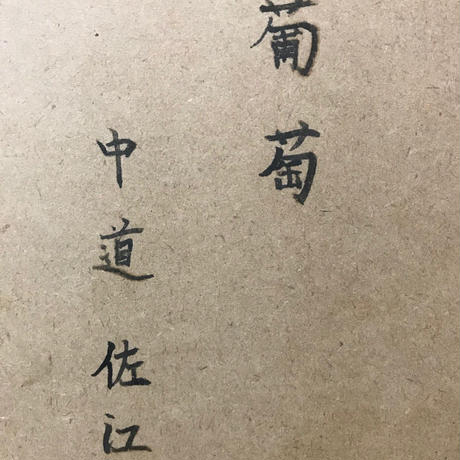 葡萄
中道佐江